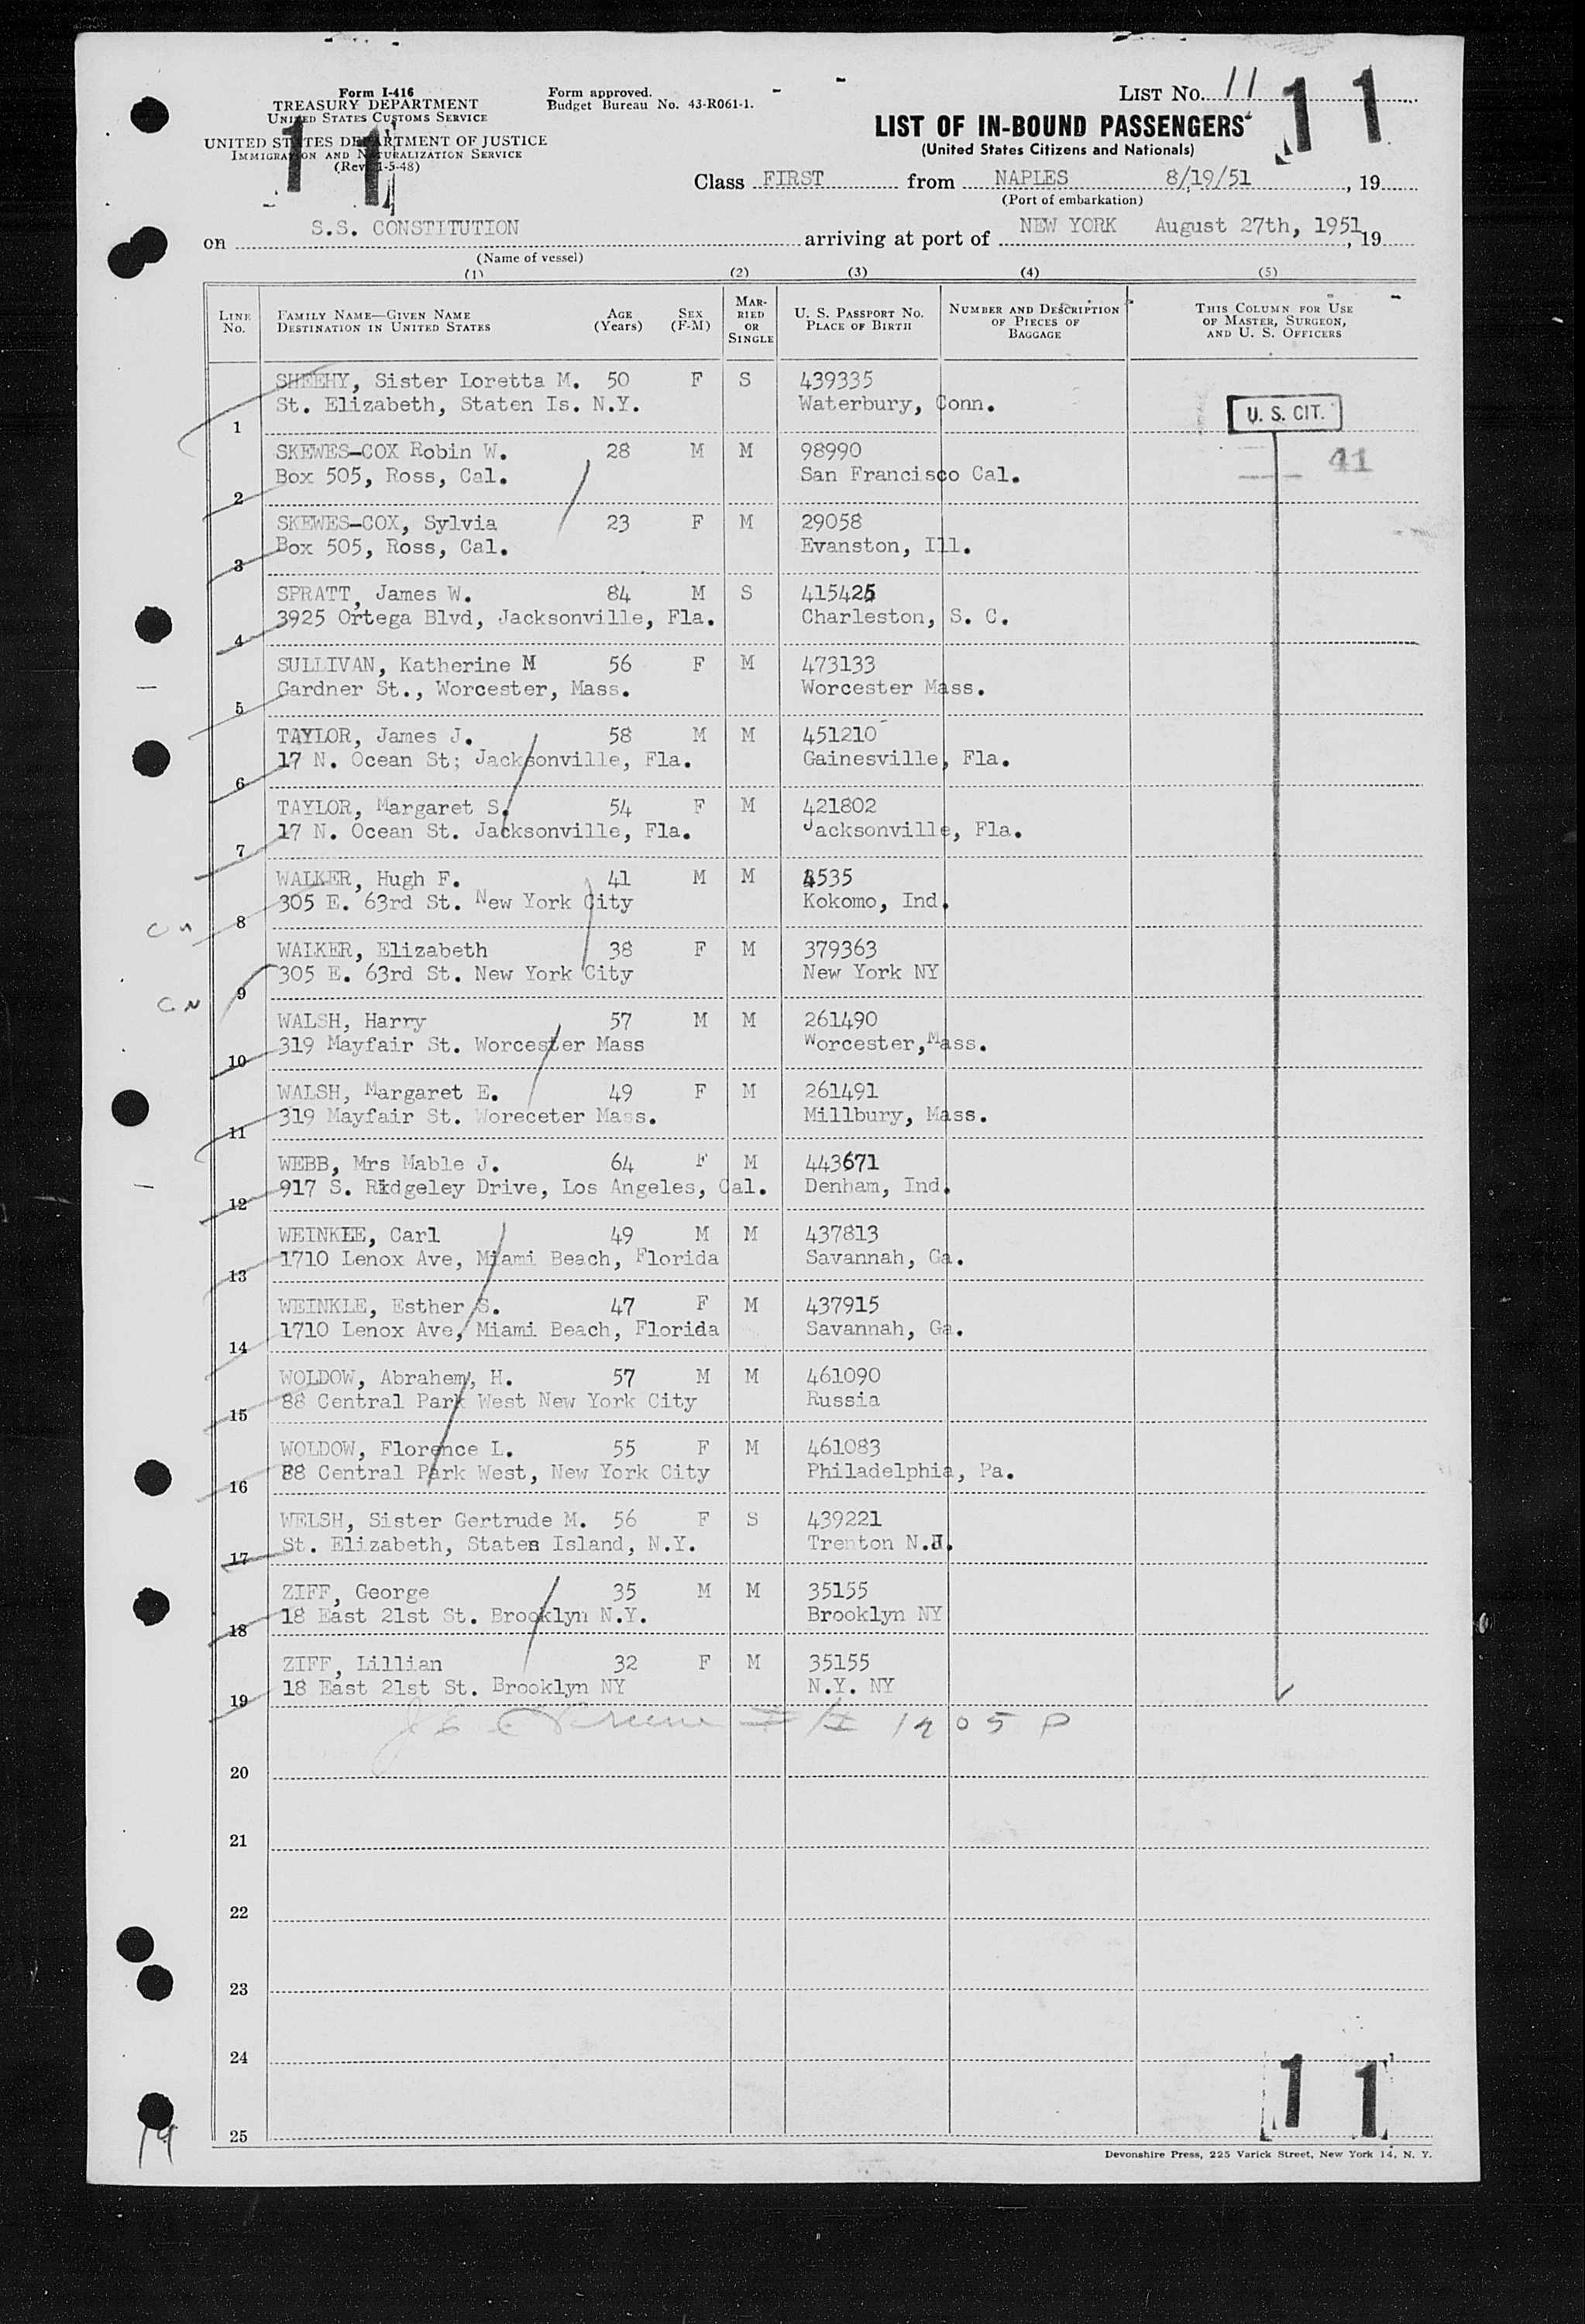 Form I-416
TREASURY DEPARTMENT
UNITED STATES CUSTOMS SERVICE
UNITED STATES DEPARTMENT OF JUSTICE
IMMIGRATION AND NATURALIZATION SERVICE
(Rev. 1-5-48)
11
Form approved.
Budget Bureau No. 43-R061-1.
LIST NO. 11
11
LIST OF IN-BOUND PASSENGERS
(United States Citizens and Nationals)
Class FIRST from NAPLES 8/19/51, 19
(Port of embarkation)
on S.S. CONSTITUTION arriving at port of NEW YORK August 27th, 1951, 19
(Name of vessel)
(1) (2) (3) (4) (5)
LINE NO. FAMILY NAME—GIVEN NAME DESTINATION IN UNITED STATES AGE (YEARS) SEX (F-M) MARRIED OR SINGLE U. S. PASSPORT NO. PLACE OF BIRTH NUMBER AND DESCRIPTION OF PIECES OF BAGGAGE THIS COLUMN FOR USE OF MASTER, SURGEON, AND U. S. OFFICERS
SHEEHY, Sister Loretta M. 50 F S 439335
1 St. Elizabeth, Staten Is. N.Y. Waterbury, Conn. U. S. CIT.
SKEWES-COX Robin W. 28 M M 98990 41
2 Box 505, Ross, Cal. San Francisco Cal.
SKEWES-COX, Sylvia 23 F M 29058
3 Box 505, Ross, Cal. Evanston, Ill.
SPRATT, James W. 84 M S 415425
4 3925 Ortega Blvd, Jacksonville, Fla. Charleston, S. C.
SULLIVAN, Katherine M 56 F M 473133
5 Gardner St., Worcester, Mass. Worcester Mass.
TAYLOR, James J. 58 M M 451210
6 17 N. Ocean St; Jacksonville, Fla. Gainesville, Fla.
TAYLOR, Margaret S. 54 F M 421802
7 17 N. Ocean St. Jacksonville, Fla. Jacksonville, Fla.
WALKER, Hugh F. 41 M M 3535
8 305 E. 63rd St. New York City Kokomo, Ind.
WALKER, Elizabeth 38 F M 379363
9 305 E. 63rd St. New York City New York NY
WALSH, Harry 57 M M 261490
10 319 Mayfair St. Worcester Mass Worcester, Mass.
WALSH, Margaret E. 49 F M 261491
11 319 Mayfair St. Woreceter Mass. Millbury, Mass.
WEBB, Mrs Mable J. 64 F M 443671
12 917 S. Ridgeley Drive, Los Angeles, Cal. Denham, Ind.
WEINKLE, Carl 49 M M 437813
13 1710 Lenox Ave, Miami Beach, Florida Savannah, Ga.
WEINKLE, Esther S. 47 F M 437915
14 1710 Lenox Ave, Miami Beach, Florida Savannah, Ga.
WOLDOW, Abrahem, H. 57 M M 461090
15 88 Central Park West New York City Russia
WOLDOW, Florence L. 55 F M 461083
16 88 Central Park West, New York City Philadelphia, Pa.
WELSH, Sister Gertrude M. 56 F S 439221
17 St. Elizabeth, Staten Island, N.Y. Trenton N.J.
ZIFF, George 35 M M 35155
18 18 East 21st St. Brooklyn N.Y. Brooklyn NY
ZIFF, Lillian 32 F M 35155
19 18 East 21st St. Brooklyn NY N.Y. NY
20
21
22
23
24
25
11
19
Devonshire Press, 225 Varick Street, New York 14, N. Y.